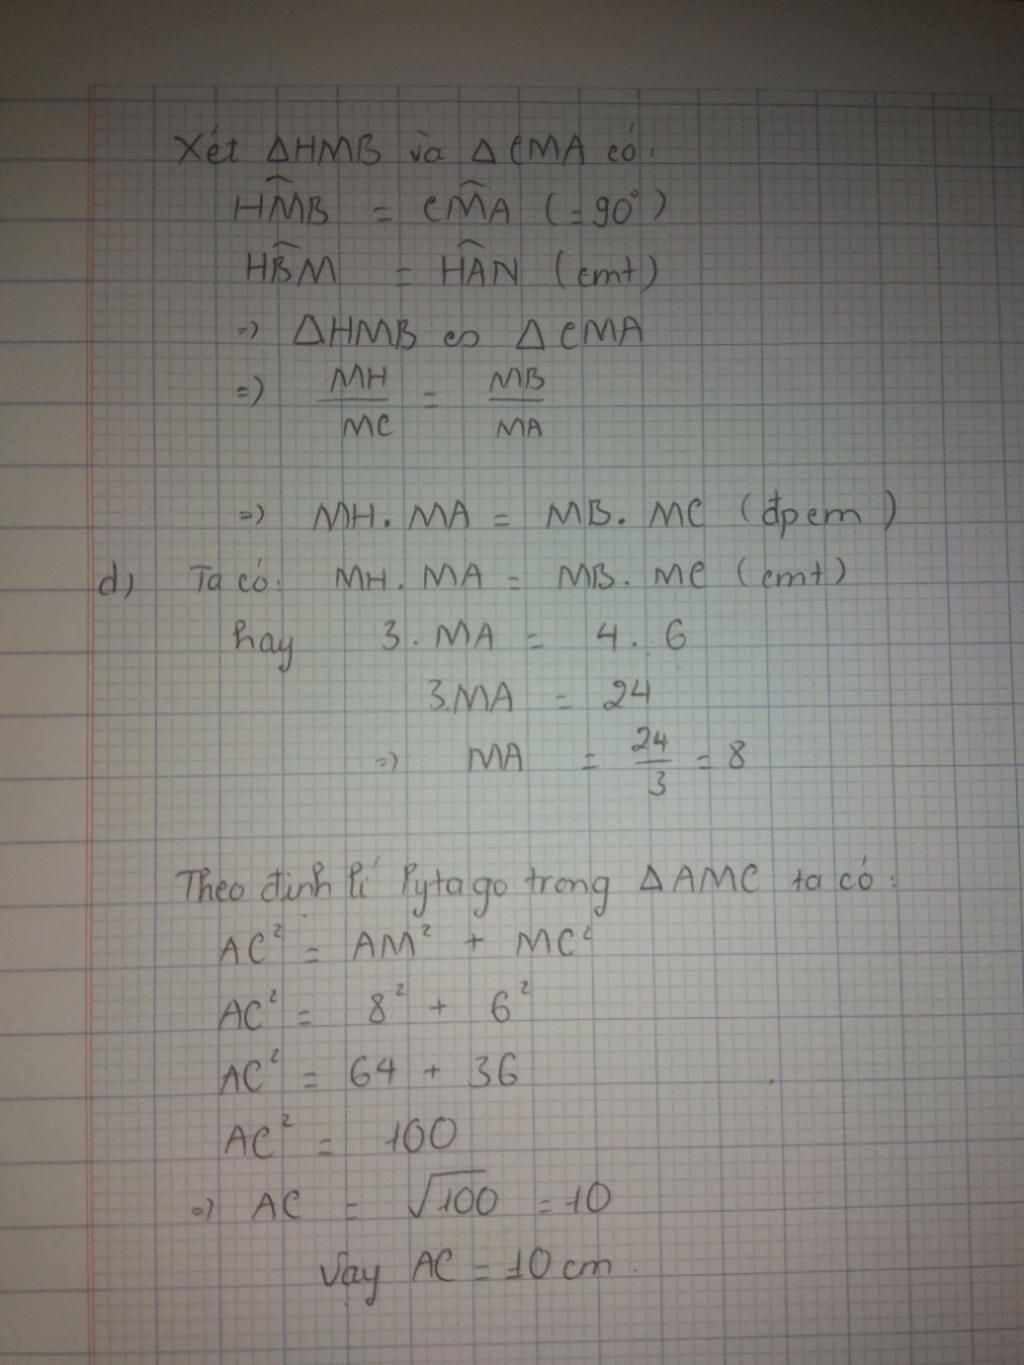 Xét ΔHMB và ΔCMA có:
HM̂B = CM̂A (=90°)
HB̂M = HÂN (cmt)
=> ΔHMB ∽ ΔCMA
=> MH/MC = MB/MA
=> MH. MA = MB. MC (đpcm)
d) Ta có: MH. MA = MB. MC (cmt)
hay 3. MA = 4. 6
3.MA = 24
=> MA = 24/3 = 8
Theo định lí Pytago trong ΔAMC ta có:
AC² = AM² + MC²
AC² = 8² + 6²
AC² = 64 + 36
AC² = 100
=> AC = √100 = 10
Vậy AC = 10 cm.